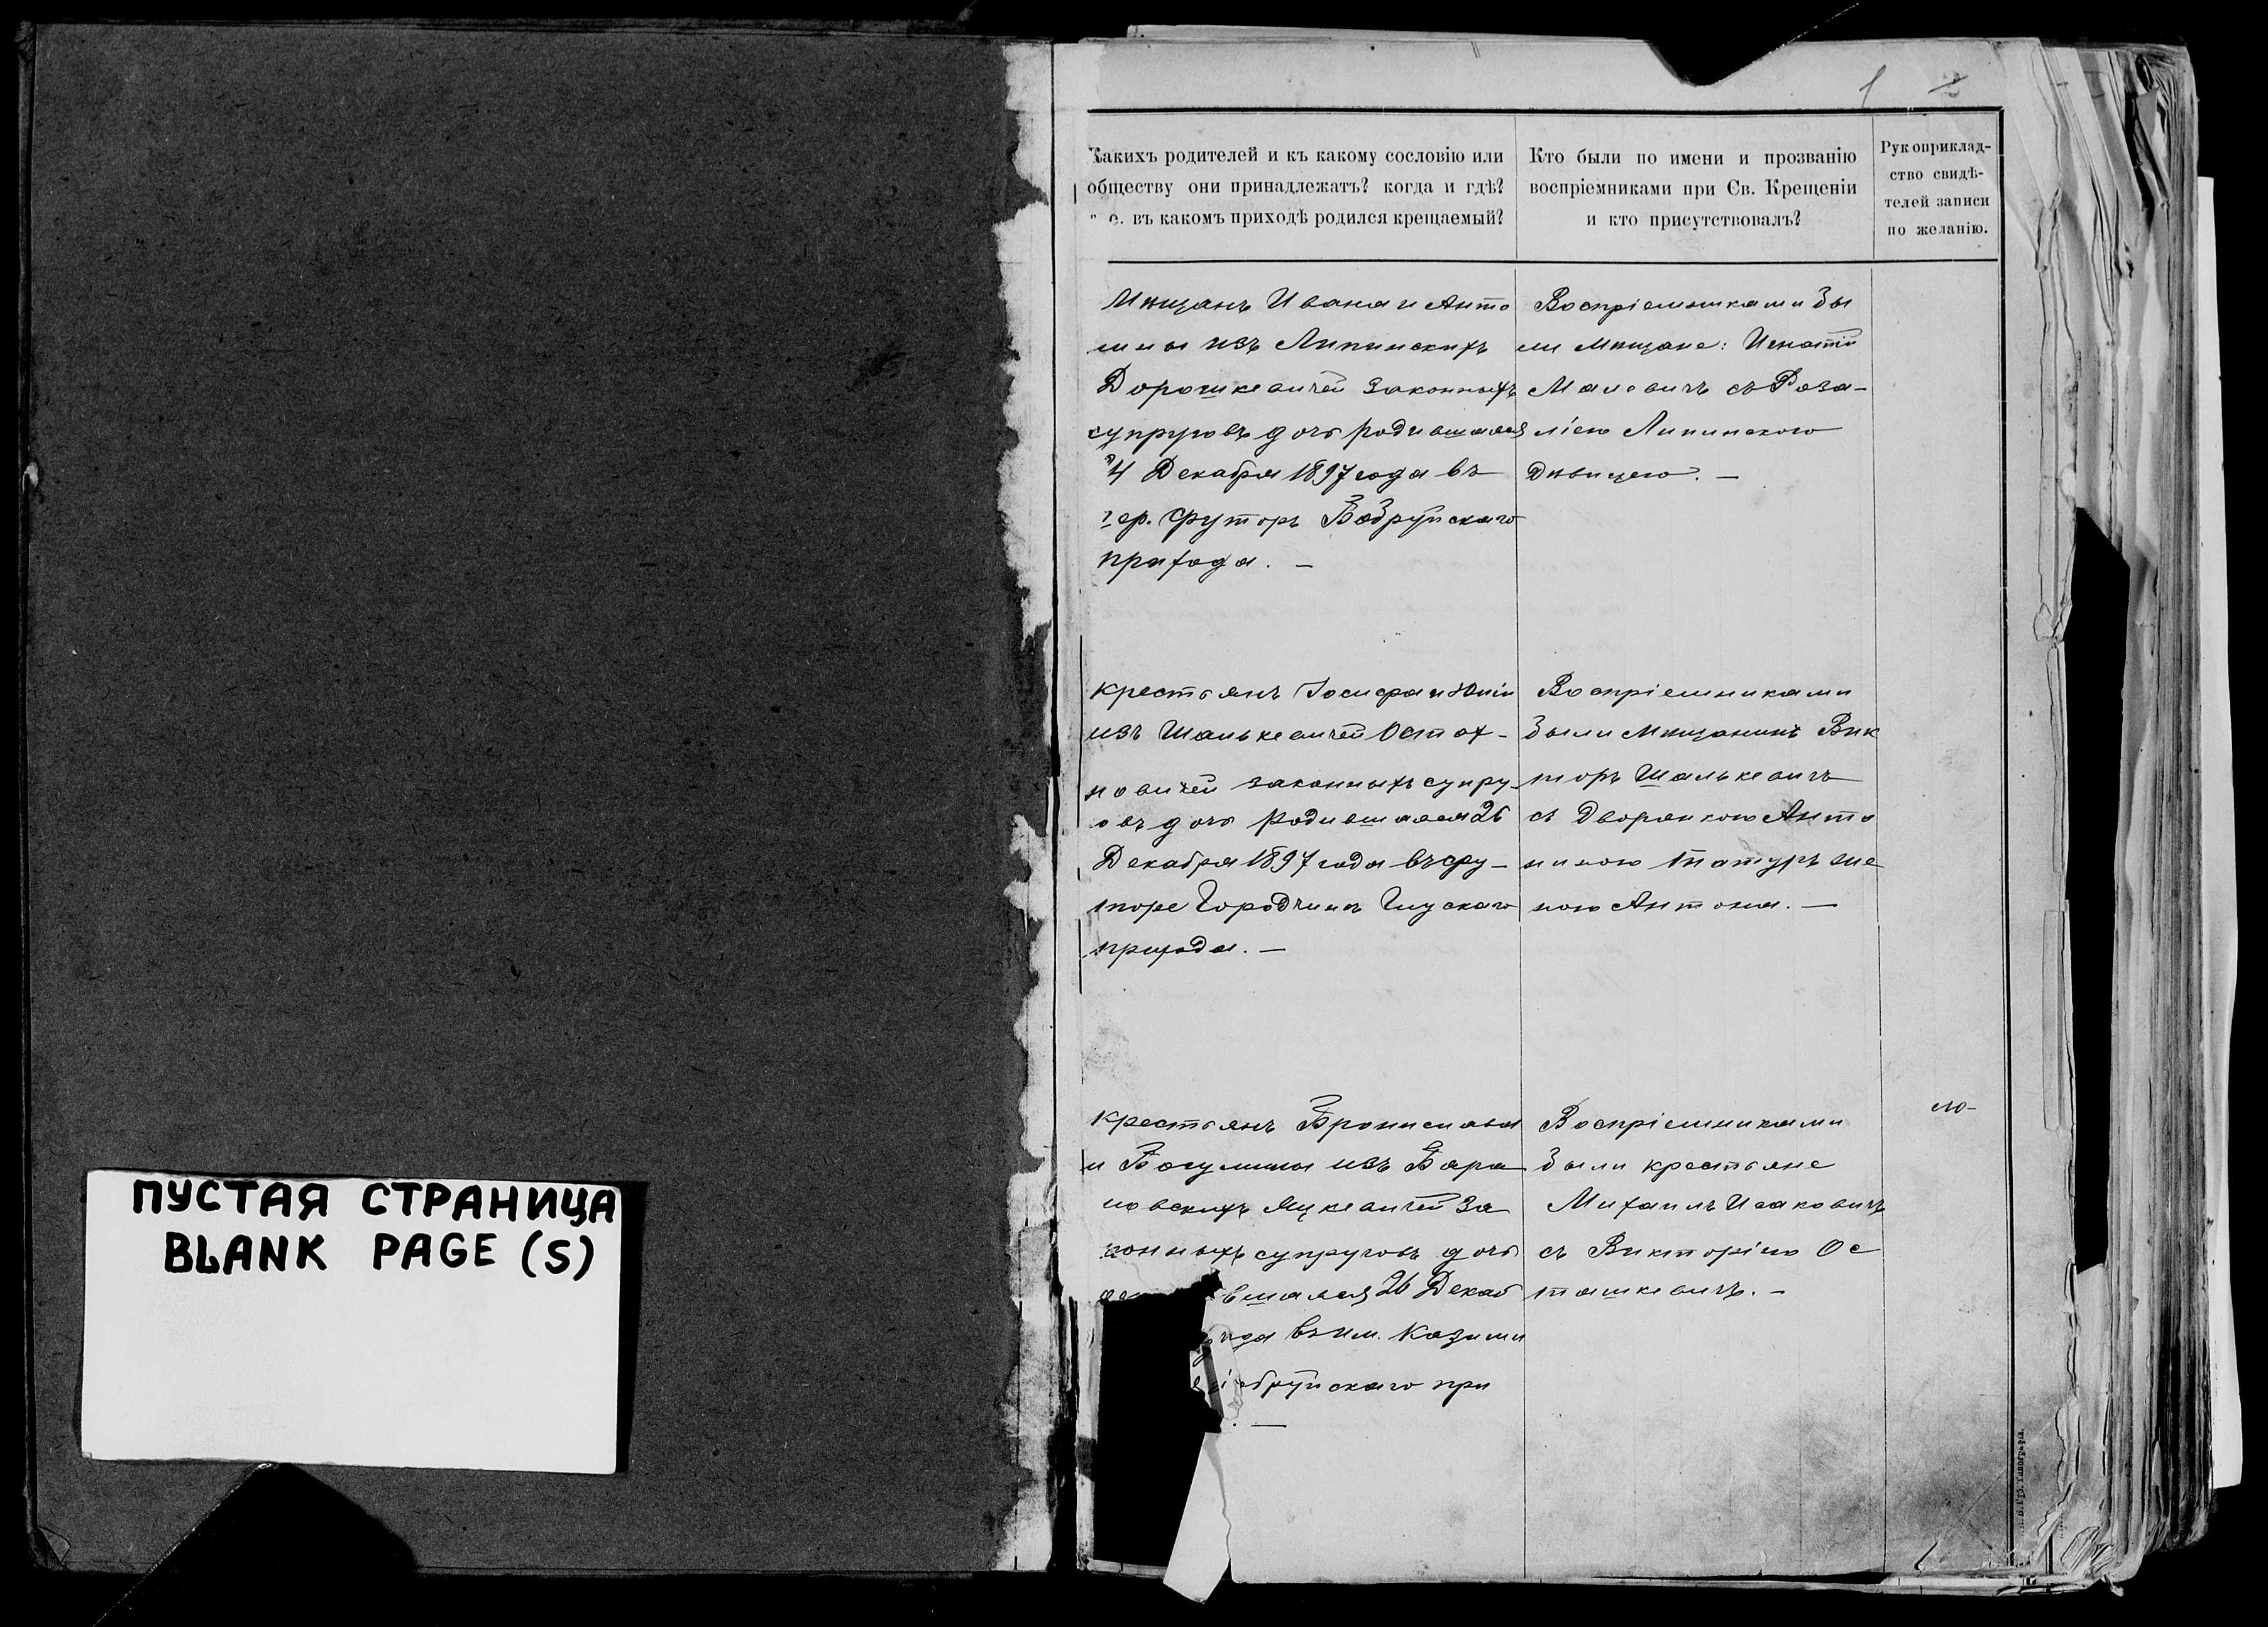 ПУСТАЯ СТРАНИЦА
BLANK PAGE (S)
1 2
Какихъ родителей и къ какому сословію или
обществу они принадлежатъ? когда и гдѣ?
е. въ какомъ приходѣ родился крещаемый?
Кто были по имени и прозванію
воспріемниками при Св. Крещеніи
и кто присутствовалъ?
Рукоприклад-
ство свидѣ-
телей записи
по желанію.
Мѣщанъ Ивана и Анто
нины изъ Липинскихъ
Дорошкевичей законныхъ
супруговъ дочь родившаяся
4 Декабря 1897 года въ
Футоръ Бобруйскаго
прихода. —
Воспріемниками бы
ли Мѣщане: Игнатій
Малевичъ съ Роза-
ліею Липинскою
Дѣвицею. —
Крестьянъ Іосифа и
изъ Шалькевичей Остах-
новичей законныхъ супру-
овъ дочь родившаяся 26
Декабря 1897 года въ фу-
торе Городчинъ Глускаго
прихода. —
Воспріемниками
были Мѣщанинъ Вик
торъ Шалькевичъ
съ Дворянкою Анто
ниною Татуръ же
ною Антона. —
Крестьянъ Бронислава
и Богумилы изъ Бара
новскихъ Яцкевичей за
конныхъ супруговъ дочь
вшаяся 26 Декаб
года въ им. Казими
обруйскаго при
. —
Воспріемниками
были крестьяне
Михаилъ Исаковичъ
съ Викторіею Ос
ташкевичъ. —
ло-
Губ. Типографія.